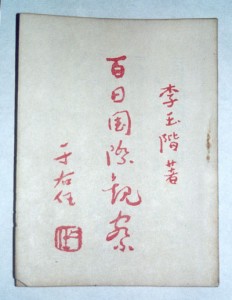 李玉階著
百日国際観察
于右任